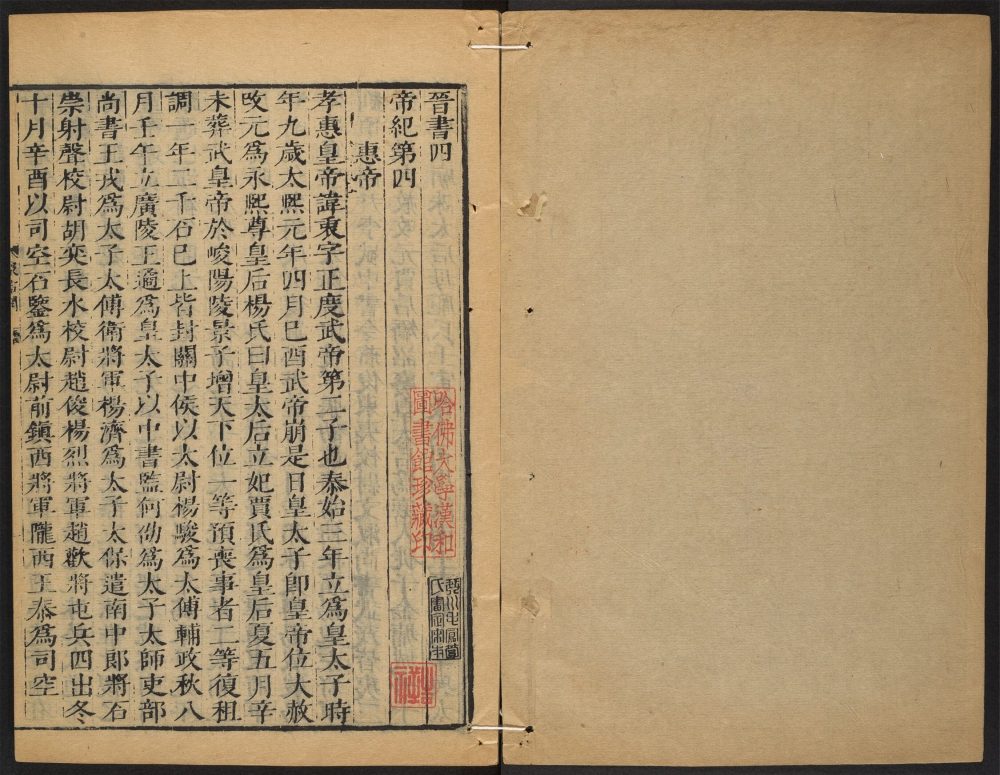 晉書四
帝紀第四
惠帝
孝惠皇帝諱衷字正度武帝第二子也泰始三年立爲皇太子時
年九歲太熙元年四月己酉武帝崩是日皇太子即皇帝位大赦
改元爲永熙尊皇后楊氏曰皇太后立妃賈氏爲皇后夏五月辛
未葬武皇帝於峻陽陵景子增天下位一等預喪事者二等復租
調一年二千石已上皆封關中侯以太尉楊駿爲太傅輔政秋八
月壬午立廣陵王遹爲皇太子以中書監何劭爲太子太師吏部
尚書王戎爲太子太傅衛將軍楊濟爲太子太保遣南中郎將石
崇射聲校尉胡奕長水校尉趙俊楊烈將軍趙歡將屯兵四出冬
十月辛酉以司空石鑒爲太尉前鎮西將軍隴西王泰爲司空
哈佛大學漢和
圖書館珍藏印